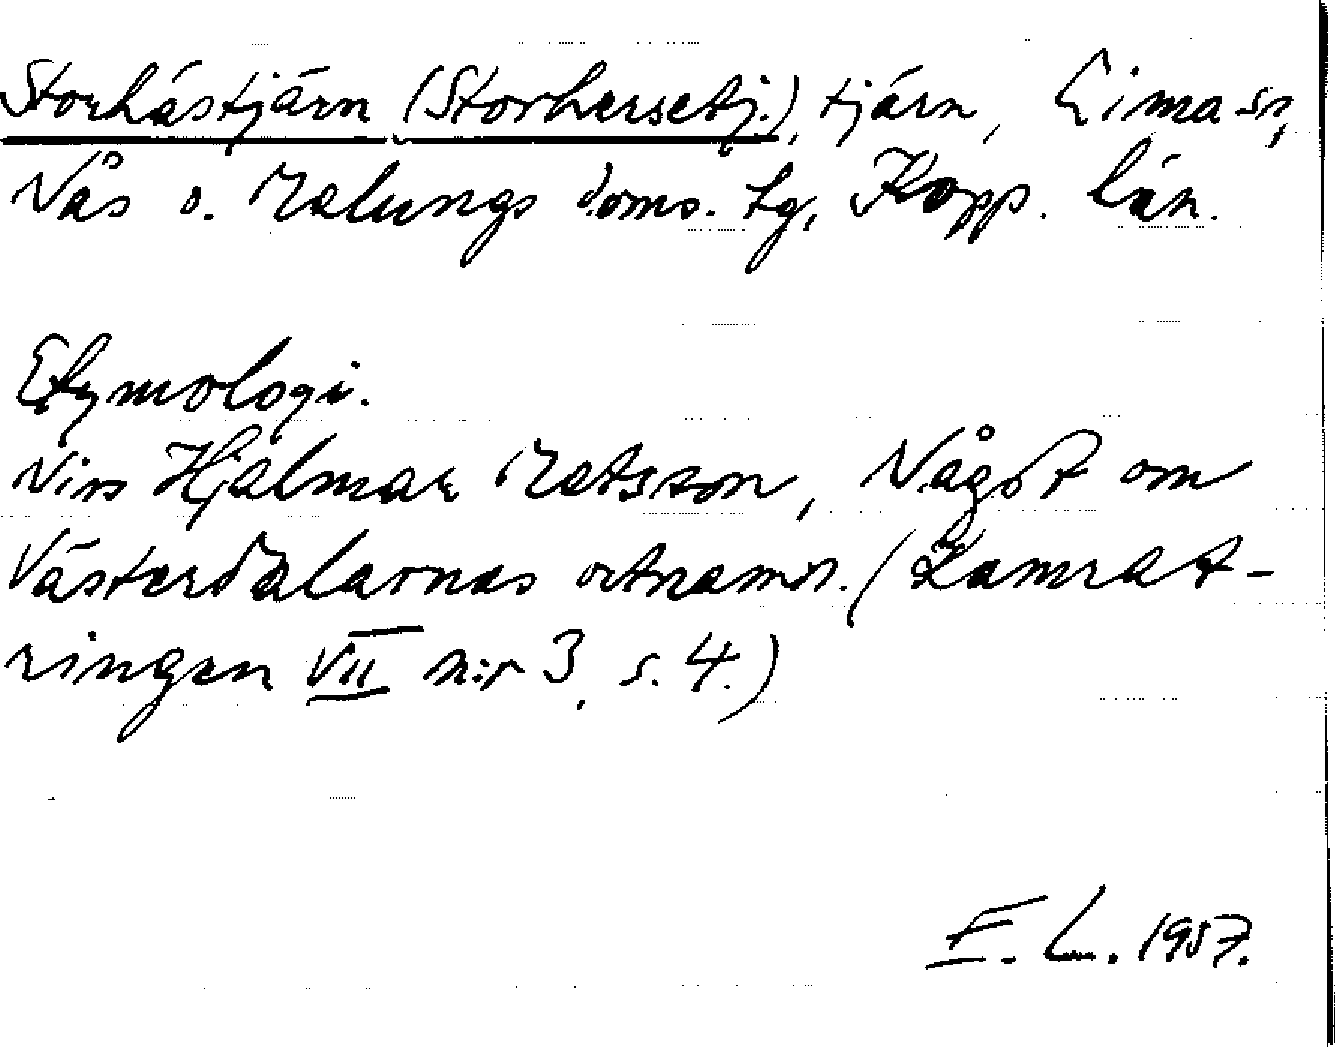 Storhästjärn (Storhersetj.), tjärn, Lima sn,
Nås o. Malungs doms. tg, Kopp. län.
Etymologi.
Niss Hjalmar Matsson, Något om
Västerdalarnas ortnamn. (Kamrat-
ringen VII n:r 3, s. 4.)
E. L. 1957.